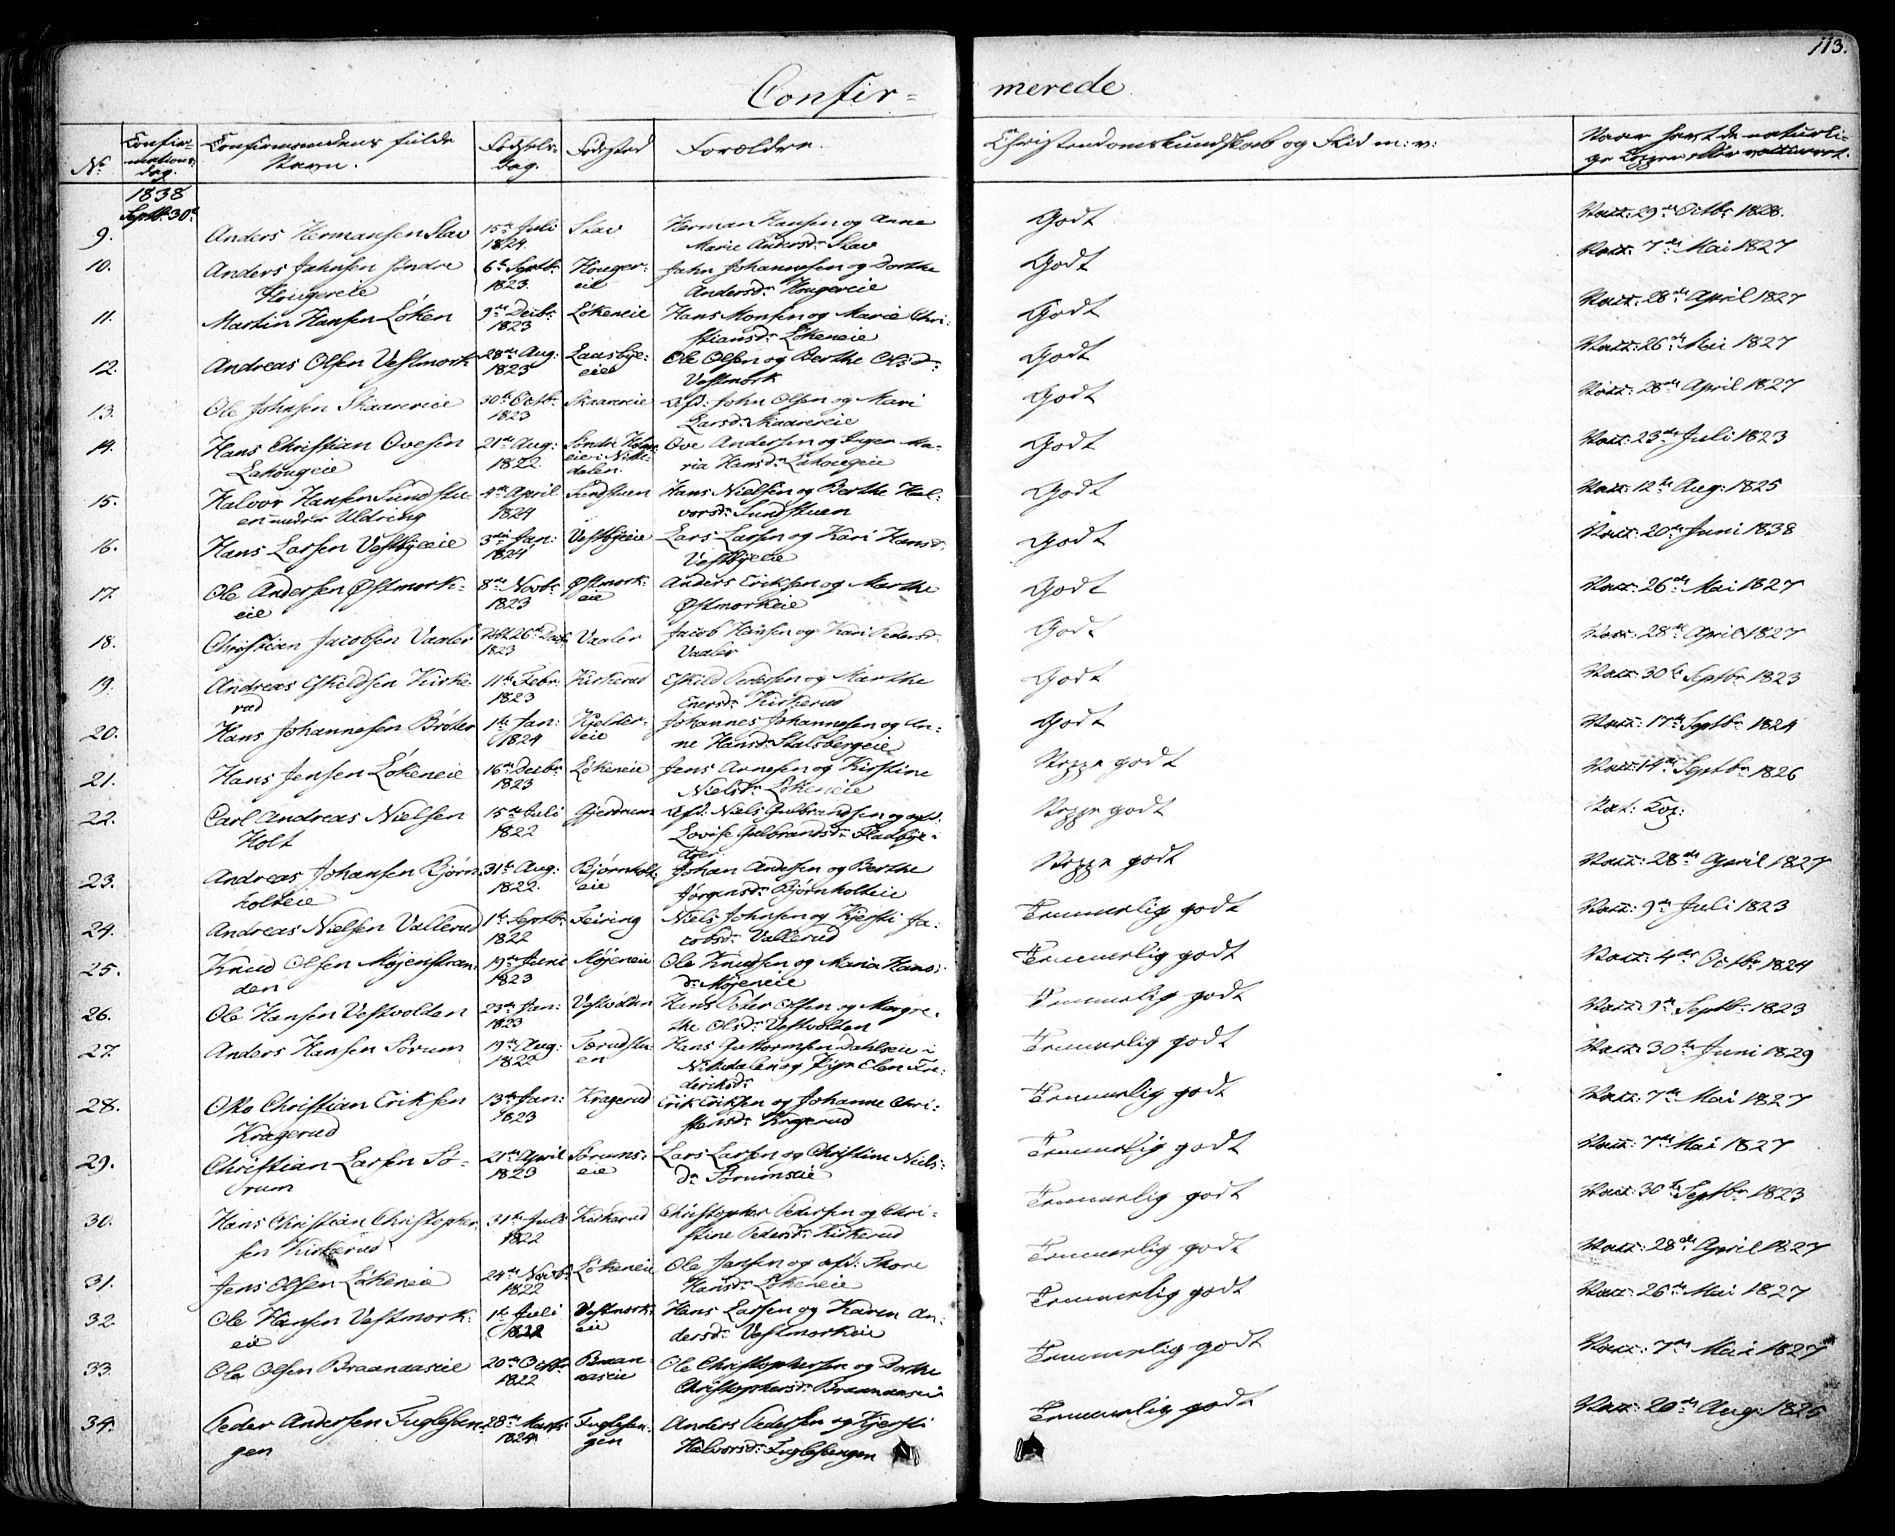 113.
Confir= merede
No. Confir= mations= dag. Confirmandens fulde Navn. Fødsels= dag. Fødested Forældre. Christendomskundskab og Flid m: v: Naar havt de naturli= ge Kopper eller vaccineret.
1838
Septb: 30te
9. Anders Hermansen Slav 15de Juli 1824 Slav Herman Hansen og Anne Marie Andersd: Slav Godt Vacc: 29de Octbr 1828.
10. Anders Jahnsen søndre Hougereie 6te Septbr: 1823. Houger= eie Jahn Johannesen og Dorthe Andersd: Hougereie Godt Vacc: 7de Mai 1827
11. Martin Hansen Løken 9de Decbr: 1823 Løkeneie Hans Monsen og Marie Chri= stiansd: Løkeneie Godt Vacc: 28de April 1827
12. Andreas Olsen Vestmork 28de Aug: 1823 Laasbye= eie Ole Olsen og Berthe Olsd: Vestmork Godt Vacc: 26de Mai 1827
13. Ole Johnsen Skaarereie 30te Octbr: 1823 Skaarereie Afd: John Olsen og Mari Larsd: Skaarereie Godt Vacc: 28de April 1827
14. Hans Christian Ovesen Lahougeie 21de Aug: 1822 Søndre Holm eie i Nitte= dalen. Ove Andersen og Inger Ma= ria Hansd: Lahougeie Godt Vacc: 23de Juli 1823
15. Halvor Hansen Sundstu= en nedre Uldring 4de April 1824 Sundstuen Hans Nielsen og Berthe Hal= vorsd: Sundstuen Godt Vacc: 12te Aug: 1825
16. Hans Larsen Vestbyeie 3die Jan: 1824 Vestbyeie Lars Larsen og Kari Hansd: Vestbyeie Godt Vacc: 20de Juni 1838
17. Ole Andersen Østmork= eie 8de Novbr: 1823 Østmork= eie Anders Eriksen og Marthe Østmorkeie Godt Vacc: 26de Mai 1827
18. Christian Jacobsen Vaaler 26de 1823 Vaaler Jacob Hansen og Kari Pedersd: Vaaler Godt Vacc: 28de April 1827
19. Andreas Eskildsen Kirke= rud 11te Febr: 1823 Kirkerud Eskild Pedersen og Marthe Enersd: Kirkerud Godt Vacc: 30te Septbr 1823
20. Hans Johannesen Bråter 1ste Jan: 1824 Kjelder= eie Johannes Johannesen og An= ne Hansd: Stalsbergeie Godt Vacc: 17de Septbr 1824
21. Hans Jensen Løkeneie 16de Decbr: 1823 Løkeneie Jens Arnesen og Kirstine Nielsd: Løkeneie Noppe godt Vacc: 14de Septbr 1826
22. Carl Andreas Nielsen Holt 15de Juli 1822 Gjerdrum Afd: Niels Gulbrandsen og afd. Lovise Gulbrandsd: Noppe godt Nat: Kop:
23. Andreas Johansen Bjørn= holteie 31te Aug: 1822. Bjørnholt= eie Johan Andersen og Berthe Jørgensd: Bjørnholteie Noppe godt Vacc: 28de April 1827
24. Andreas Nielsen Vallerud 1ste Septbr: 1822 Seiring Niels Johnsen og Kjersti Ja= cobsd: Vallerud Temmerlig godt Vacc: 9de Juli 1823
25. Knud Olsen Møjenstran= den 19de Juni 1823 Møjeneie Ole Knudsen og Maria Hans= d: Møjeneie Temmerlig godt Vacc: 4de Octbr 1824
26. Ole Hansen Vestvolden 23de Jan: 1823 Vestvolden Hans Peder Olsen og Margre= the Olsd: Vestvolden Temmerlig godt Vacc: 9de Septbr: 1823
27. Anders Hansen Sørum 19de Aug: 1822 Tærudstu= en Hans Guttormsen Dahlseie i Nittedalen og Pige Elen Fre= deriksd: Temmerlig godt Vacc: 30te Juni 1829
28. Otto Christian Eriksen Kragerud 13de Jan: 1823 Kragerud Erik Eriksen og Johanne Chri= stensd: Kragerud Temmerlig godt Vacc: 7de Mai 1827
29. Christian Larsen Sø= rum 21de April 1823 Sørums= eie Lars Larsen og Christine Niels= d: Sørumseie Temmerlig godt Vacc: 7de Mai 1827
30. Hans Christian Christopher= sen Kirkerud 31te Juli 1822 Kirkerud Christopher Pedersen og Chri= stine Pedersd: Kirkerud Temmerlig godt Vacc: 30te Septbr 1823
31. Jens Olsen Løkeneie 24de Novbr: 1822 Løkeneie Ole Jensen og afd: Thore Hansd: Løkeneie Temmerlig godt Vacc: 28de April 1827
32. Ole Hansen Vestmork= eie 1ste Juli 1822 Vestmork= eie Hans Larsen og Karen An= dersd: Vestmorkeie Temmerlig godt Vacc: 26de Mai 1827
33. Ole Olsen Braanaaseie 20de Octbr: 1822 Braan= aaseie Ole Christophersen og Dorthe Christophersd: Braanaaseie Temmerlig godt Vacc: 7de Mai 1827
34. Peder Andersen Fuglesan= gen 28de Marts 1824 Fuglesan= gen Anders Pedersen og Kjersti Halvorsd: Fuglesangen Temmerlig godt Vacc: 20de Aug: 1825